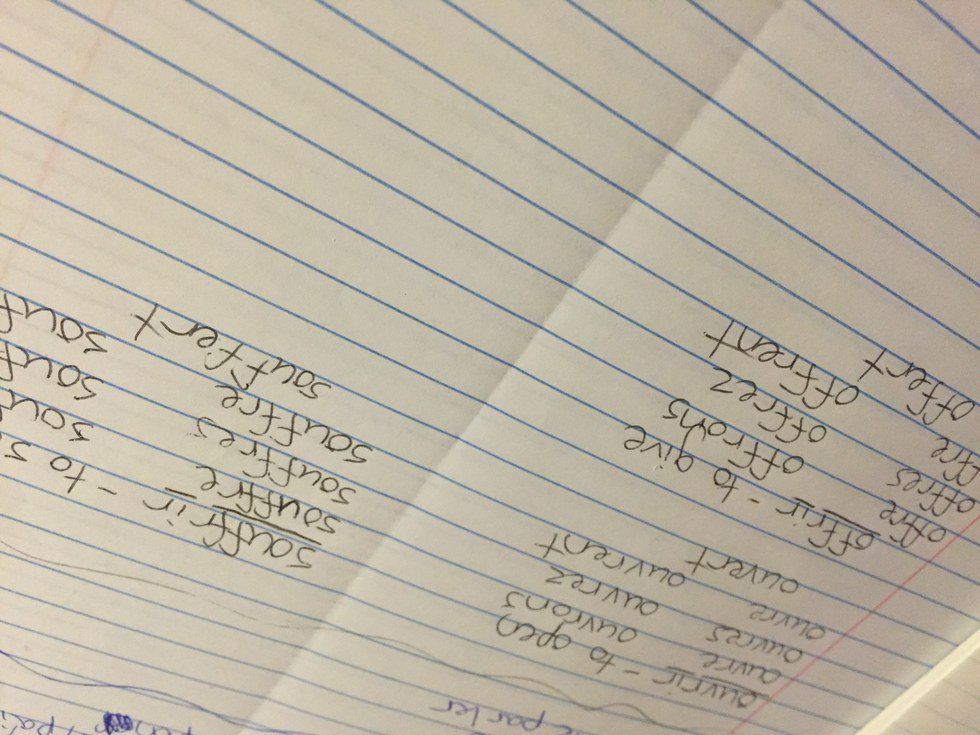 parler
ouvrir - to open
ouvre ouvrons
ouvres ouvrez
ouvre ouvrent
ouvert
offrir - to give
offre offrons
offres offrez
offre offrent
offert
souffrir - to
souffre
souffres
souffre
souffert